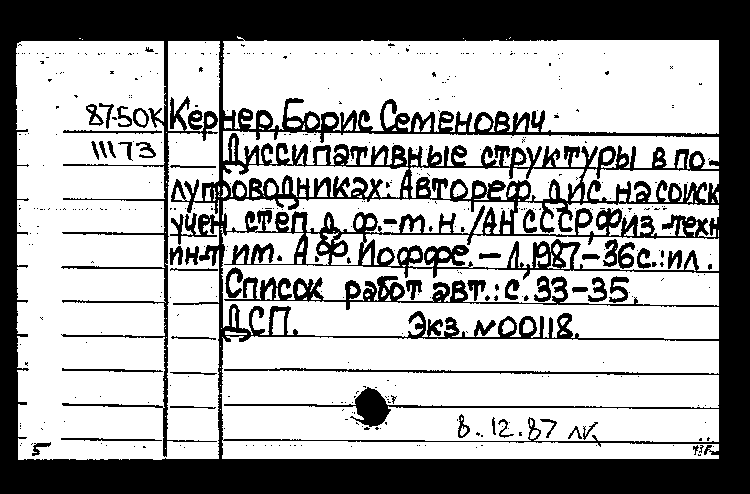 87-50К Кернер, Борис Семенович.
11173 Диссипативные структуры в по-
лупроводниках: Автореф. дис. на соиск
учен. степ. д. ф.-т. н. /АН СССР, Физ.-техн
ин-т им. А.Ф. Иоффе. — Л., 1987. — 36с.: ил.
Список работ авт.: с. 33-35.
ДСП. Экз. №00118.
8.12.87 ЛК
5